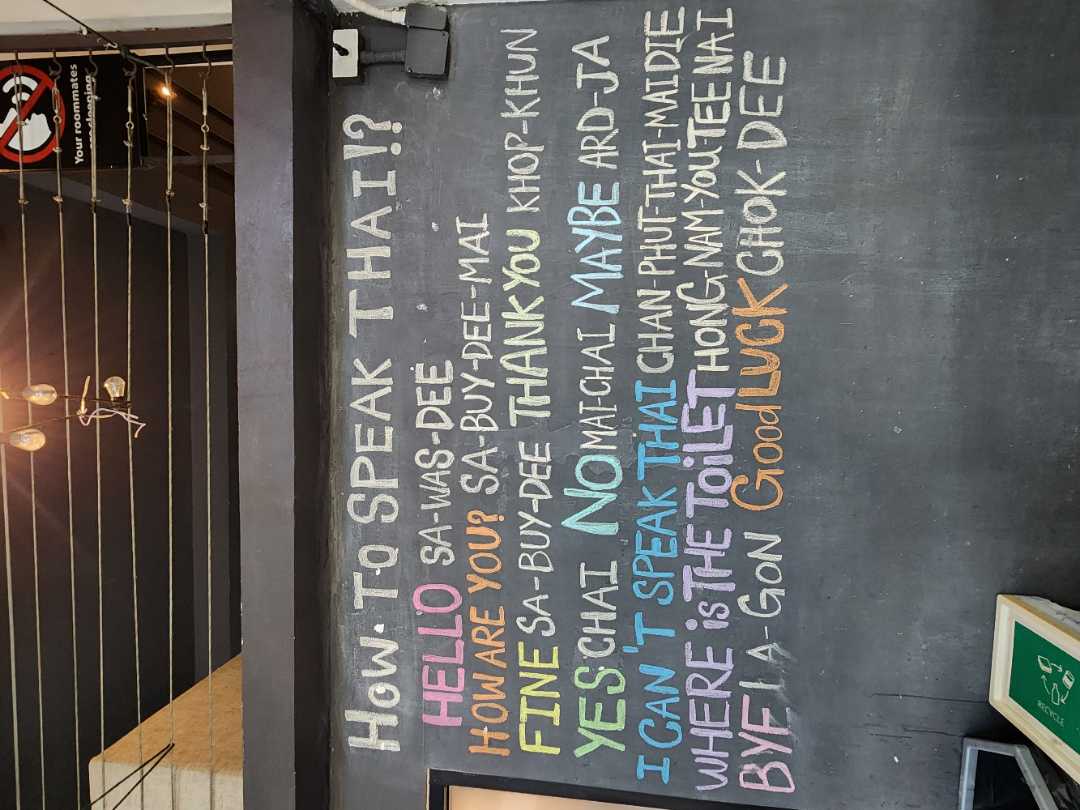 HOW·TO SPEAK THAI!?
HELLO SA-WAS-DEE
HOW ARE YOU? SA-BUY-DEE-MAI
FINE SA-BUY-DEE THANK YOU KHOP-KHUN
YES: CHAI NO MAI-CHAI MAYBE ARD-JA
I CAN'T SPEAK THAI CHAN-PHUT-THAI-MAIDIE
WHERE iS THE TOiLET HONG-NAM-YOUTEENAI
BYE LA-GON Good LUCK CHOK-DEE
Your roommates
are sleeping
RECYCLE